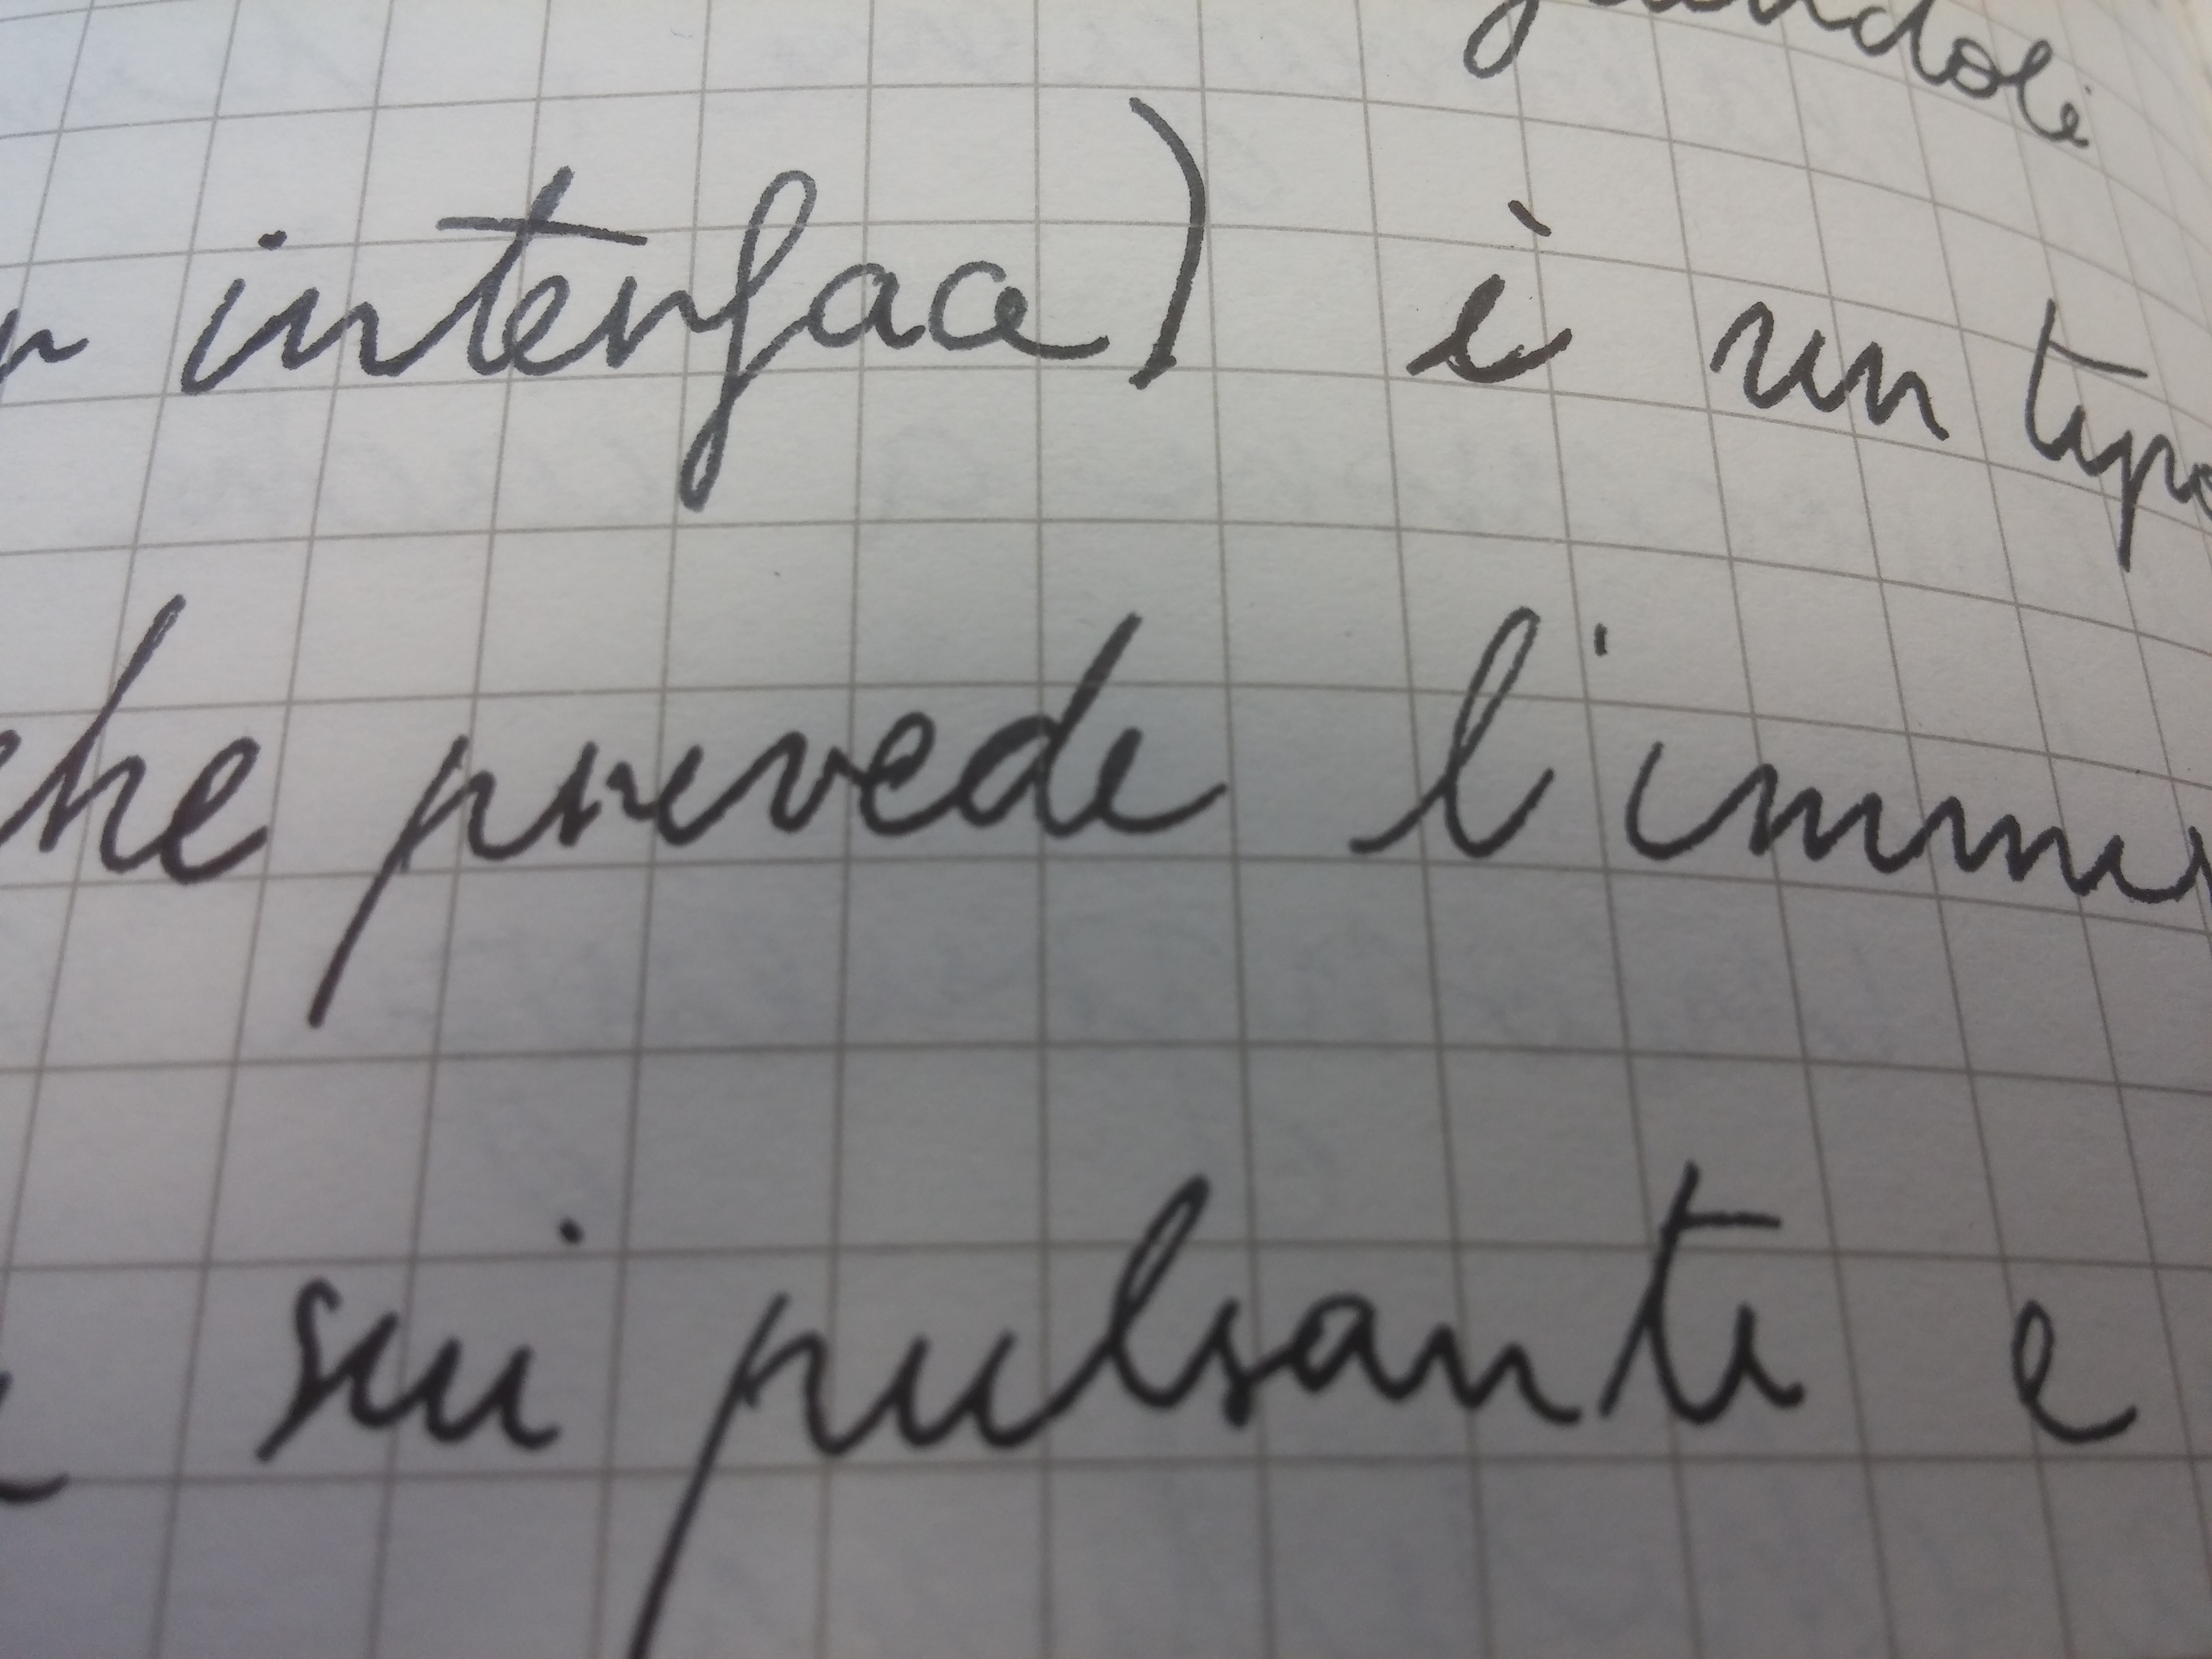 interface) è un tipo
che prevede l'imm
sui pulsanti e